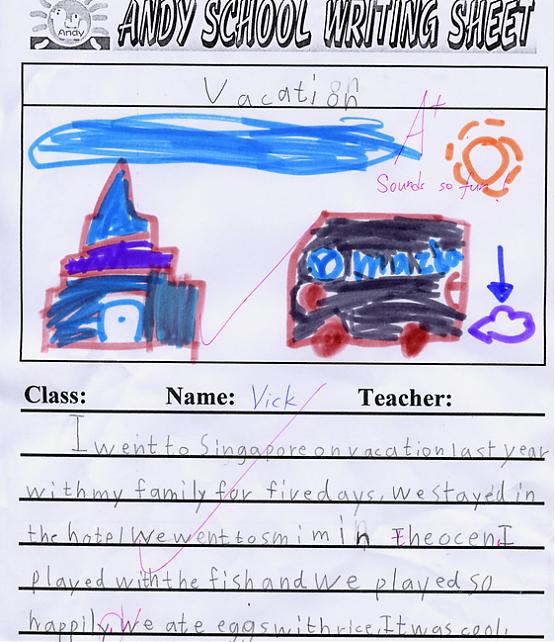 Andy
ANDY SCHOOL WRITING SHEET
Vacation
A+
Sounds so fun!
mazda
Class: Name: Vick Teacher:
I went to Singapore on vacation last year
with my family for five days. we stayed in
the hotel We went to smimin Theocen. I
played with the fish and we played so
happily. We ate eggs with rice. It was cool.